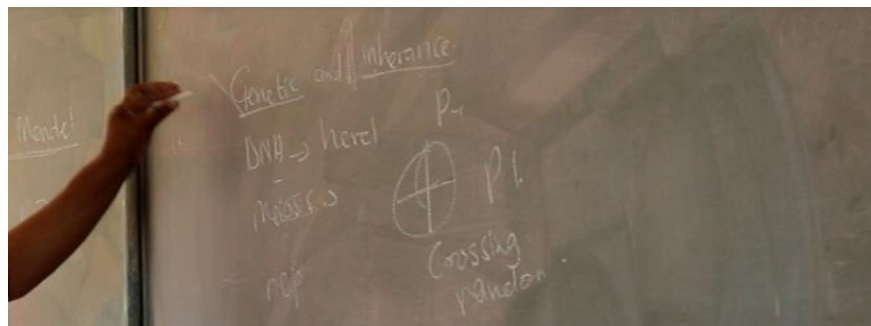 Mendel
Genetic and inherance
DNA → hered
P-1
Meiosis
P1.
Crossing
random.
rep